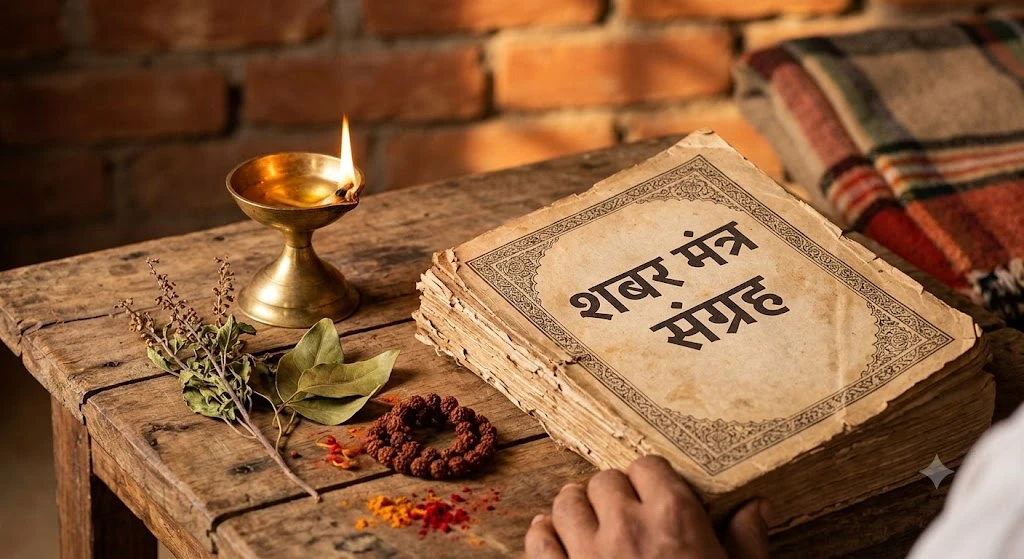 शबर मंत्र
संग्रह